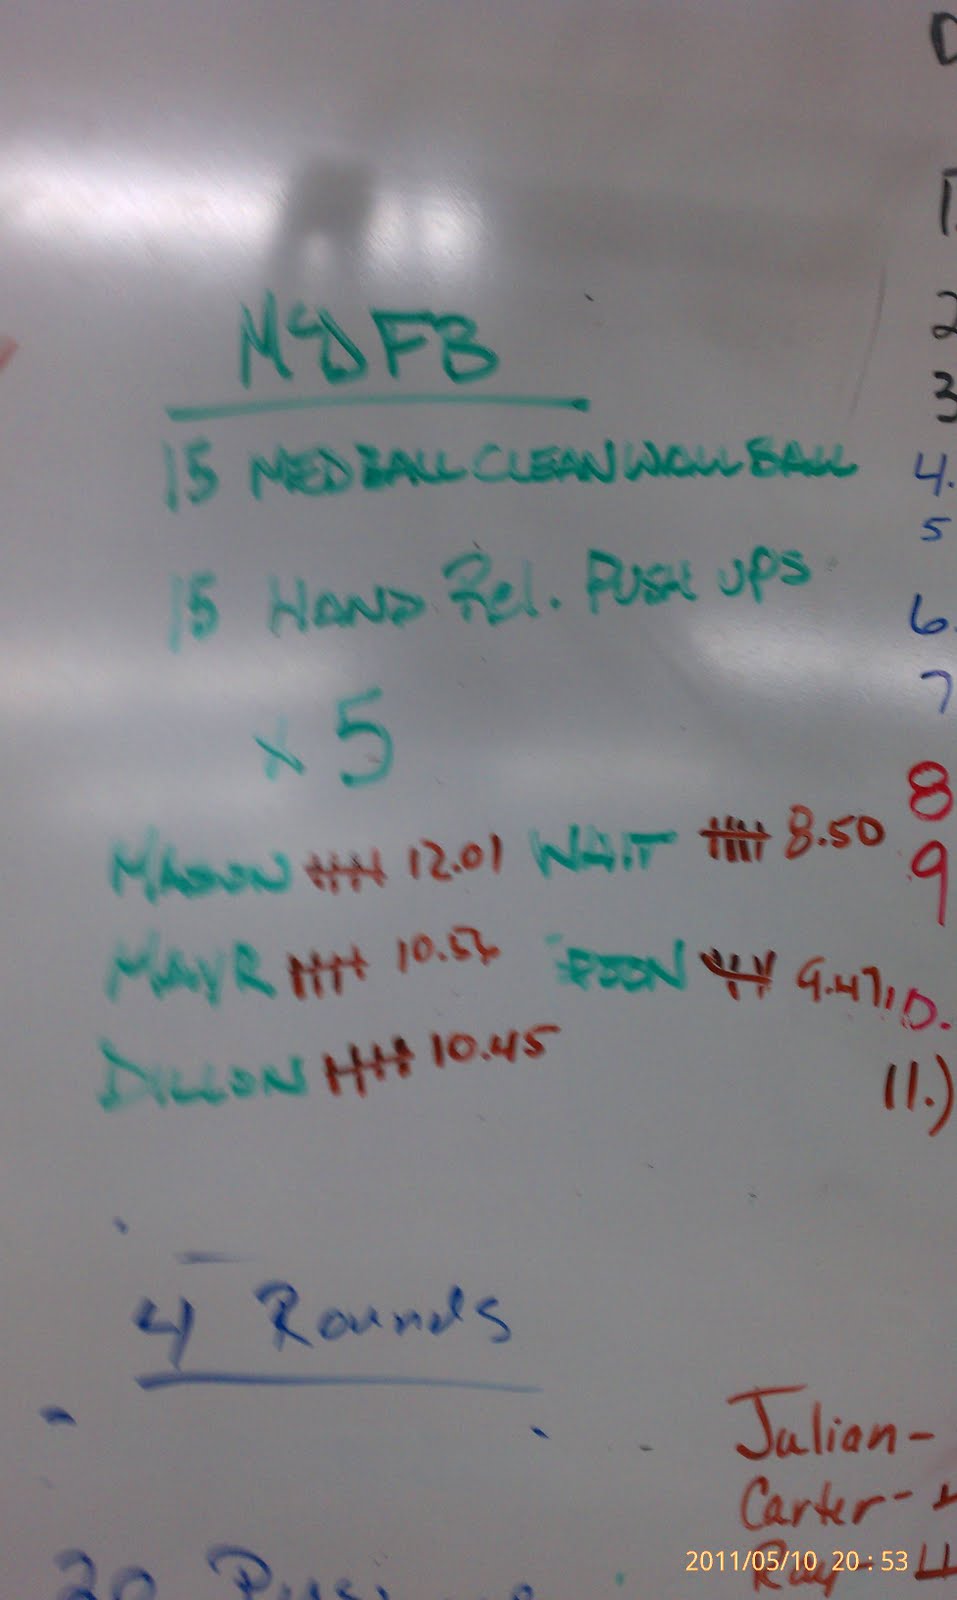 15 MEDBALL CLEAN WALL BALL
15 HAND Rel. PUSH UPS
x 5
12.01 WAIT 8.50
MAYR 10.5
9.47
DILLON 10.45
4 Rounds
20
D
1.
2
3
4.
5
6.
7
8
9
10.
11.)
Julian-
Carter-
Ray-
2011/05/10 20:53